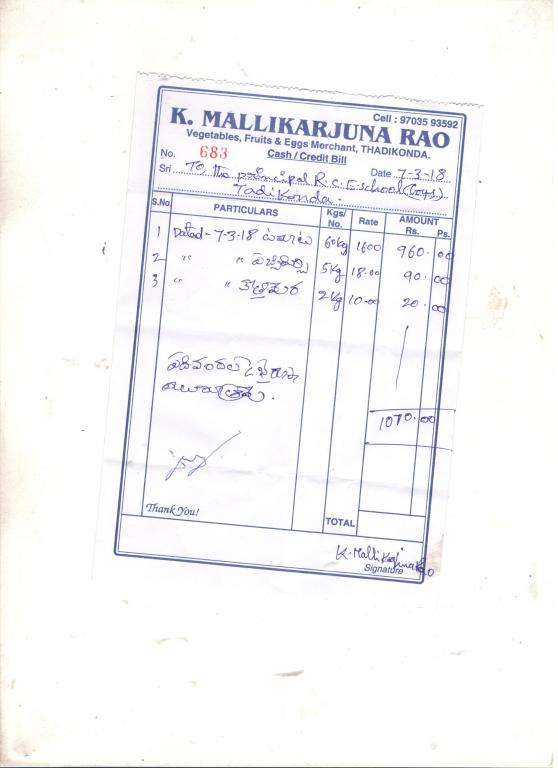 Cell : 97035 93592
K. MALLIKARJUNA RAO
Vegetables, Fruits & Eggs Merchant, THADIKONDA.
Cash / Credit Bill
No. 683
Date 7-3-18
Sri To, the principal R.C.E. school (boys)
Tadikonda.
S.No. PARTICULARS Kgs/No. Rate AMOUNT Rs. Ps.
1 Dated - 7-3-18 టమాటా 60kg 16.00 960.00
2 " " పచ్చిమిర్చి 5kg 18.00 90.00
3 " " కొత్తిమీర 2kg 10.00 20.00
1070.00
Thank You!
TOTAL
K. Mallikarjuna Rao
Signature